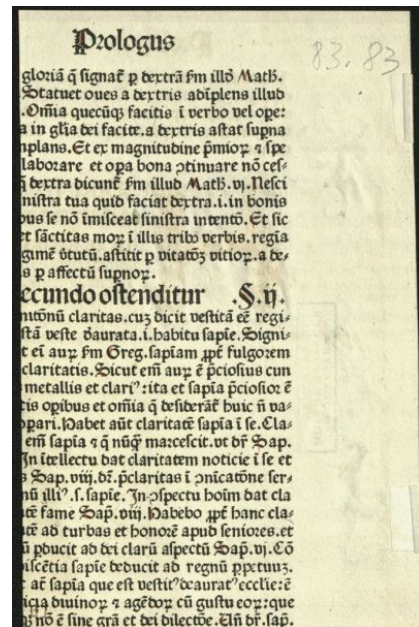 Prologus
83.83
gloriā q̄ signat̄ ꝑ dextrā ẜm illđ Matħ.
Statuet oues a dextris adīplens illud
.Om̄ia quecūqꝫ facitis ī verbo vel ope:
a in gl̄ia dei facite. a dextris astat sup̄na
nplans. Et ex magnitudine p̄mioꝝ ⁊ spe
laborare et oꝑa bona ↄtinuare nō ces-
q̄ dextra dicunt̄ ẜm illud Matħ. vj. Nesci
nistra tua quid faciat dextra. i. in bonis
ous se nō īmisceat sinistra intentō. Et sic
et sāctitas moꝝ ī illis tribꝰ verbis. regia
gimē v̄tutū. astitit ꝑ vitatōꝫ vitioꝝ. a de-
s ꝑ affectū supnoꝝ.
ecundo ostenditur .§.ij.
mitōnū claritas. cuꝫ dicit vestitā eē regi-
stā veste đaurata. i. habitu sapīe. Signi-
t eī auꝝ ẜm Greg. sapīam ꝓpt̄ fulgorem
claritatis. Sicut em̄ auꝝ ē p̄ciosius cun
metallis et clariꝰ: ita et sapīa p̄ciosior ē
tis opibus et om̄ia q̄ desiderāt̄ huic n̄ va-
oꝑari. Habet aūt claritatē sapīa ī se. Cla-
em̄ sapīa ⁊ q̄ nūq̄ marcescit. vt dr̄ Sap.
Jn ītellectu dat claritatem noticie ī se et
s Sap. viij. dr̄. p̄claritas ī ↄ̄nicatōne ser-
nū illiꝰ. s. sapīe. Jn ↄspectu hoīm dat cla
atē fame Sap̄. viij. Habebo ꝓpt̄ hanc cla-
atē ad turbas et honorē apud seniores. et
ū ꝑducit ad dei clarū aspectū Sap̄. vj. Cō
iscētia sapīe deducit ad regnū ꝑpetuuꝫ.
t at̄ sapīa que est vestitꝰ deauratꝰ eccl̄ie: ē
icia diuinoꝝ ⁊ agēdoꝝ cū gustu eoꝝ: que
qꝫ nō ē sine gr̄a et dei dilectōe. Un̄ dr̄. sap̄.